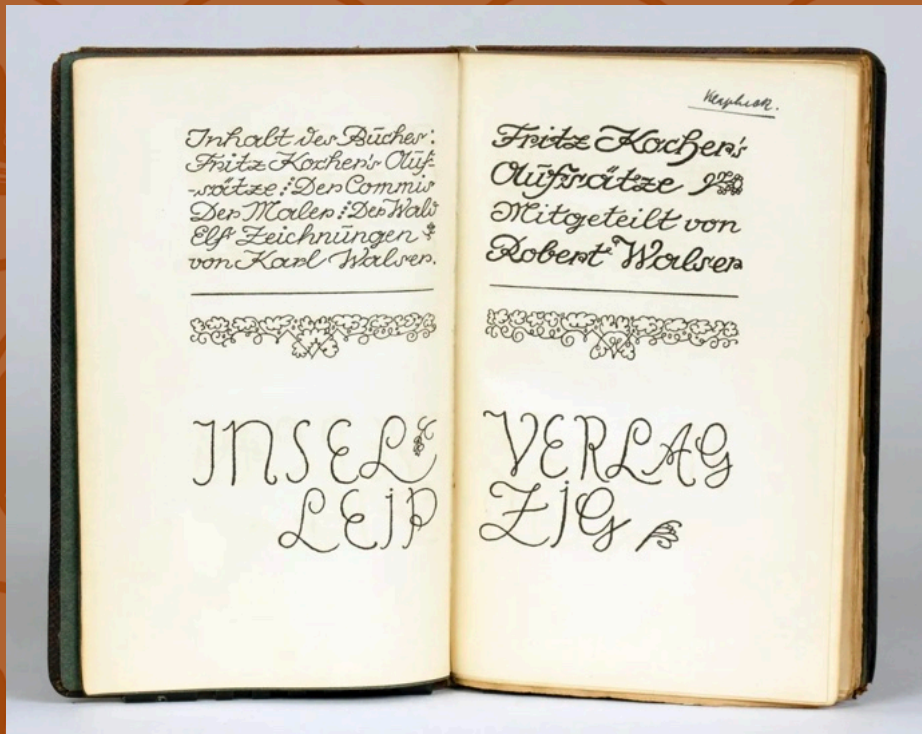 Inhalt des Buches:
Fritz Kocher's Auf-
-sätze : Der Commis
Der Maler : Der Wald
Elf Zeichnungen
von Karl Walser.
INSEL
LEIP
Fritz Kocher's
Aufsätze
Mitgeteilt von
Robert Walser
VERLAG
ZIG